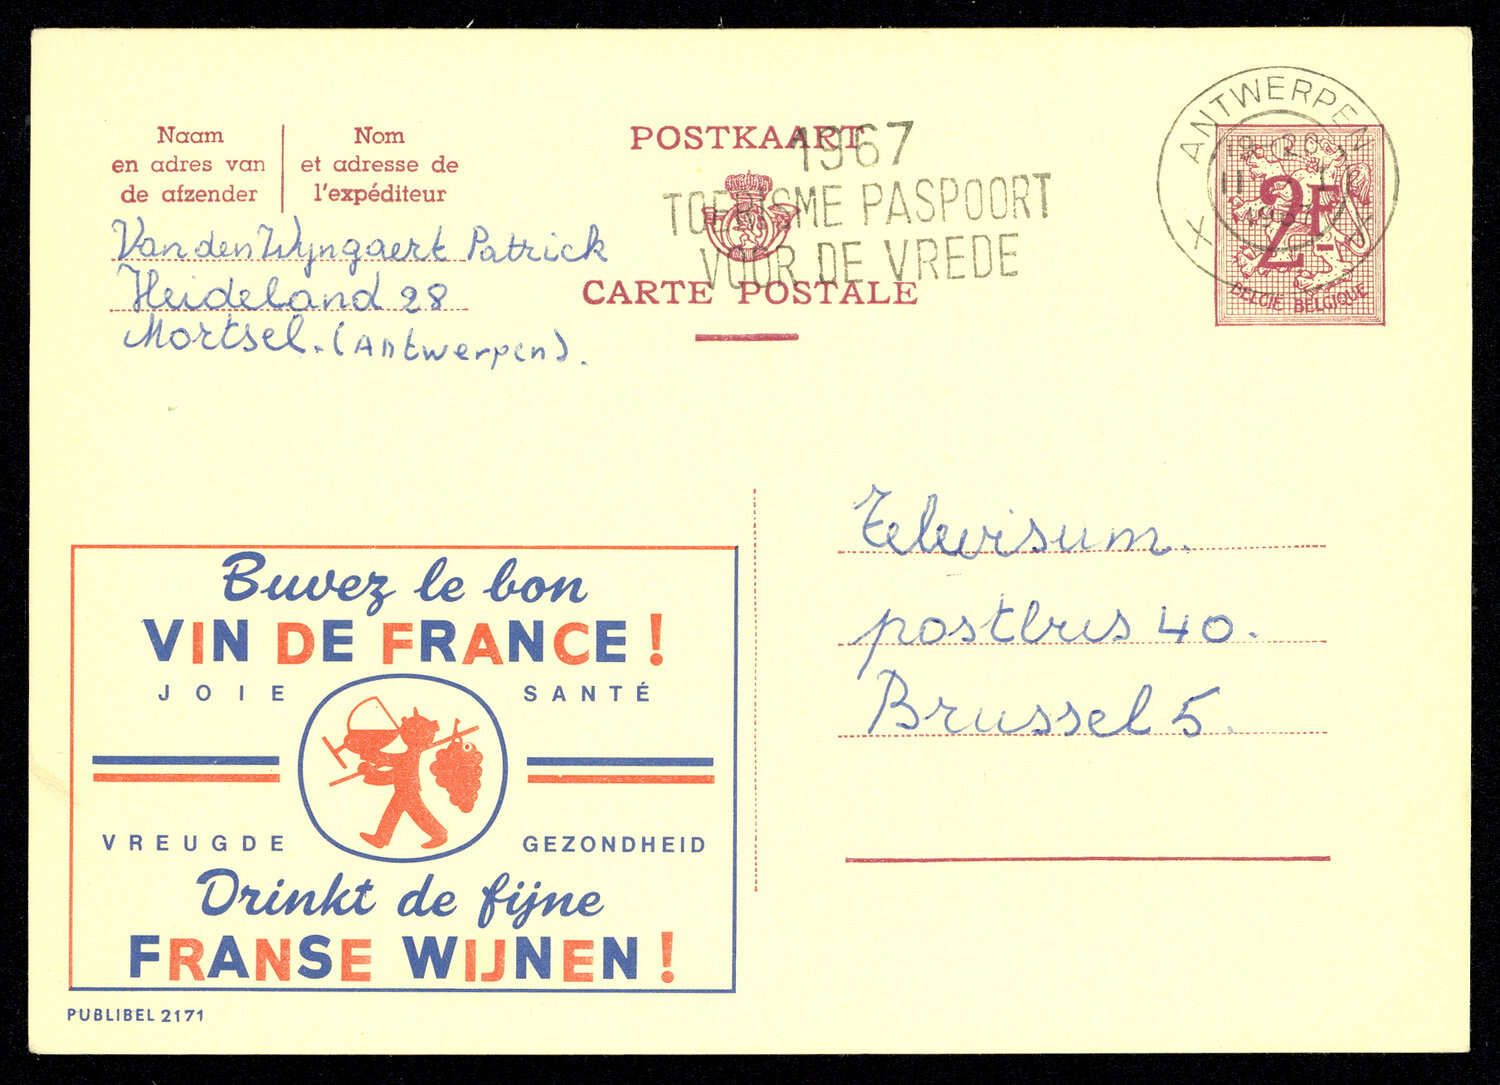 Naam
en adres van
de afzender
Nom
et adresse de
l'expéditeur
POSTKAART
CARTE POSTALE
1967
TOERISME PASPOORT
VOOR DE VREDE
ANTWERPEN X
2F
BELGIE BELGIQUE
Van den Wyngaert Patrick
Heideland 28
Mortsel. (Antwerpen).
Televisum.
postbus 40.
Brussel 5.
Buvez le bon
VIN DE FRANCE !
JOIE SANTÉ
VREUGDE GEZONDHEID
Drinkt de fijne
FRANSE WIJNEN !
PUBLIBEL 2171